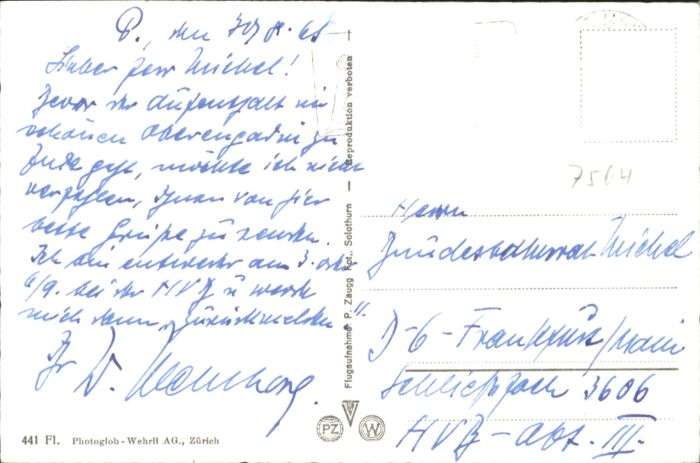 P., den 30. 8. 65
Lieber Herr Michel!
Bevor der Aufenthalt im
schönen Oberengadin zu
Ende geht, möchte ich nicht
vergessen, Ihnen von hier
beste Grüße zu senden.
Ich bin entweder am 3. oder
6/9. bei der HVB u. werde
mich dann "zurückmelden".
Ihr W.
441 Fl. Photoglob-Wehrli AG., Zürich
Flugaufnahme P. Zaugg Fot., Solothurn — Reproduktion verboten
PZ
W
7504
Herrn
Bundesbahnrat Michel
D-6-Frankfurt/Main
Schließfach 3606
HVB-Abt. III.